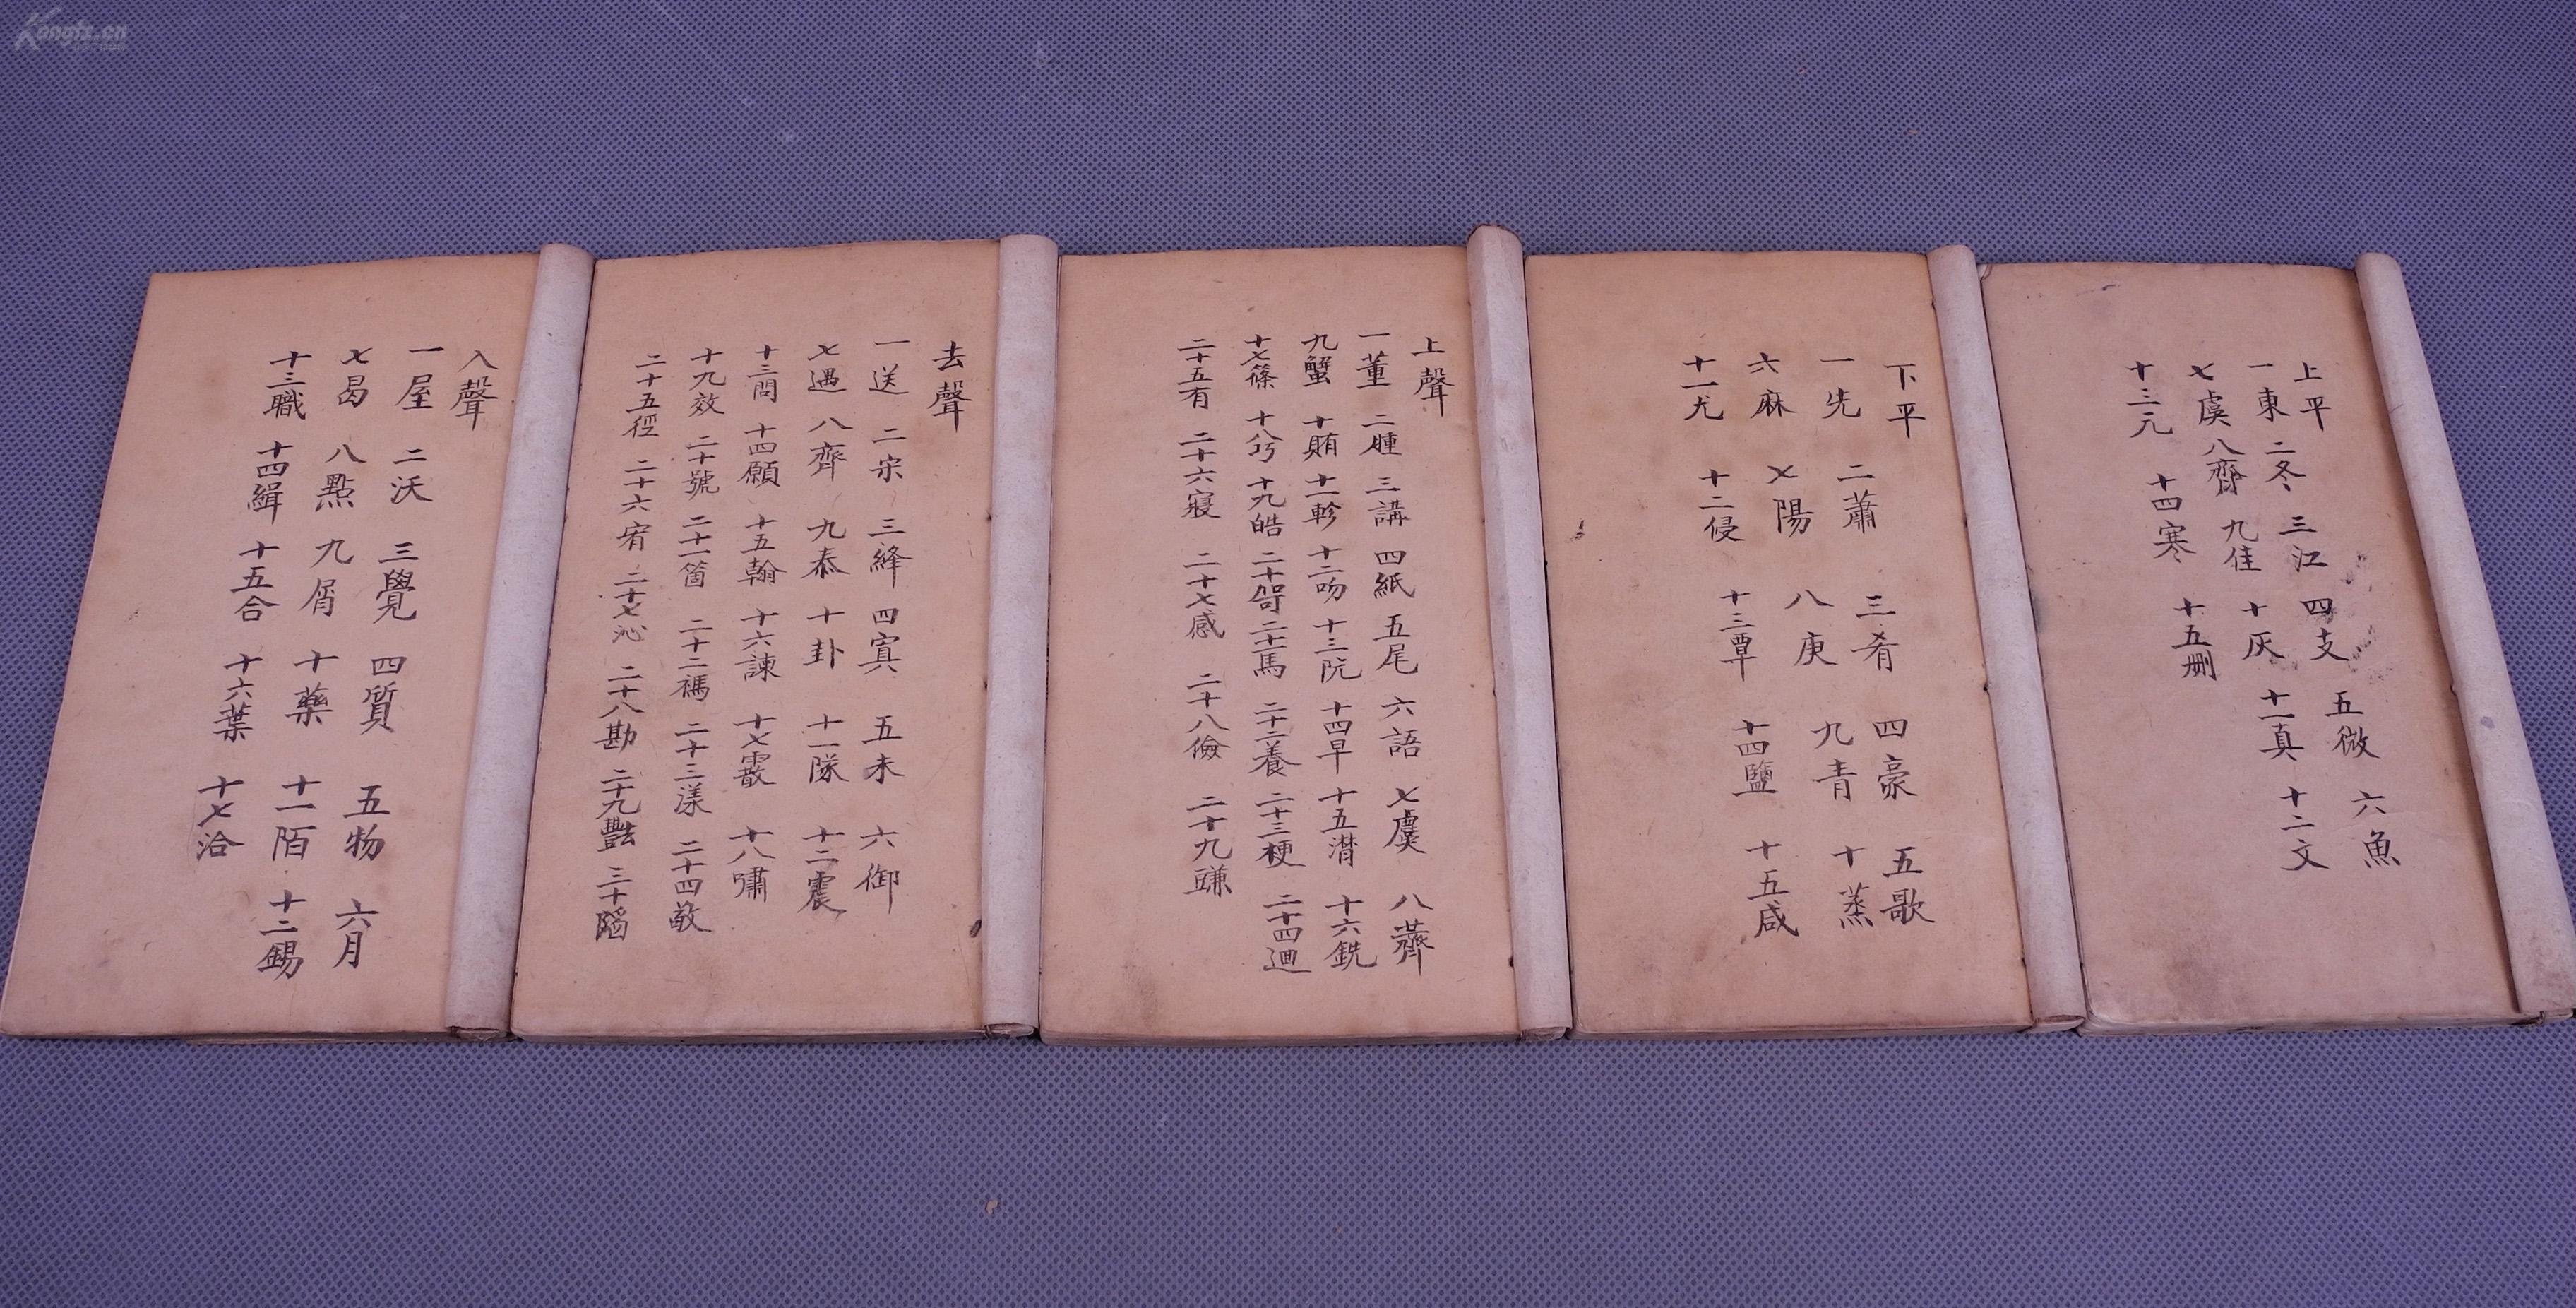 上平
一東 二冬 三江 四支 五微 六魚
七虞 八齊 九佳 十灰 十一真 十二文
十三元 十四寒 十五刪
下平
一先 二蕭 三肴 四豪 五歌
六麻 七陽 八庚 九青 十蒸
十一尤 十二侵 十三覃 十四鹽 十五咸
上聲
一董 二腫 三講 四紙 五尾 六語 七麌 八薺
九蟹 十賄 十一軫 十二吻 十三阮 十四旱 十五潸 十六銑
十七篠 十八巧 十九皓 二十哿 二十一馬 二十二養 二十三梗 二十四逈
二十五有 二十六寢 二十七感 二十八儉 二十九豏
去聲
一送 二宋 三絳 四寘 五未 六御
七遇 八齊 九泰 十卦 十一隊 十二震
十三問 十四願 十五翰 十六諫 十七霰 十八嘯
十九效 二十號 二十一箇 二十二禡 二十三漾 二十四敬
二十五徑 二十六宥 二十七沁 二十八勘 二十九豔 三十陷
入聲
一屋 二沃 三覺 四質 五物 六月
七曷 八點 九屑 十藥 十一陌 十二錫
十三職 十四緝 十五合 十六葉 十七洽
Kongfz.cn